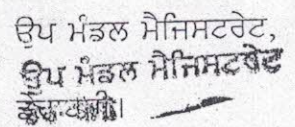 ਉਪ ਮੰਡਲ ਮੈਜਿਸਟਰੇਟ,
ਉਪ ਮੰਡਲ ਮੈਜਿਸਟਰੇਟ